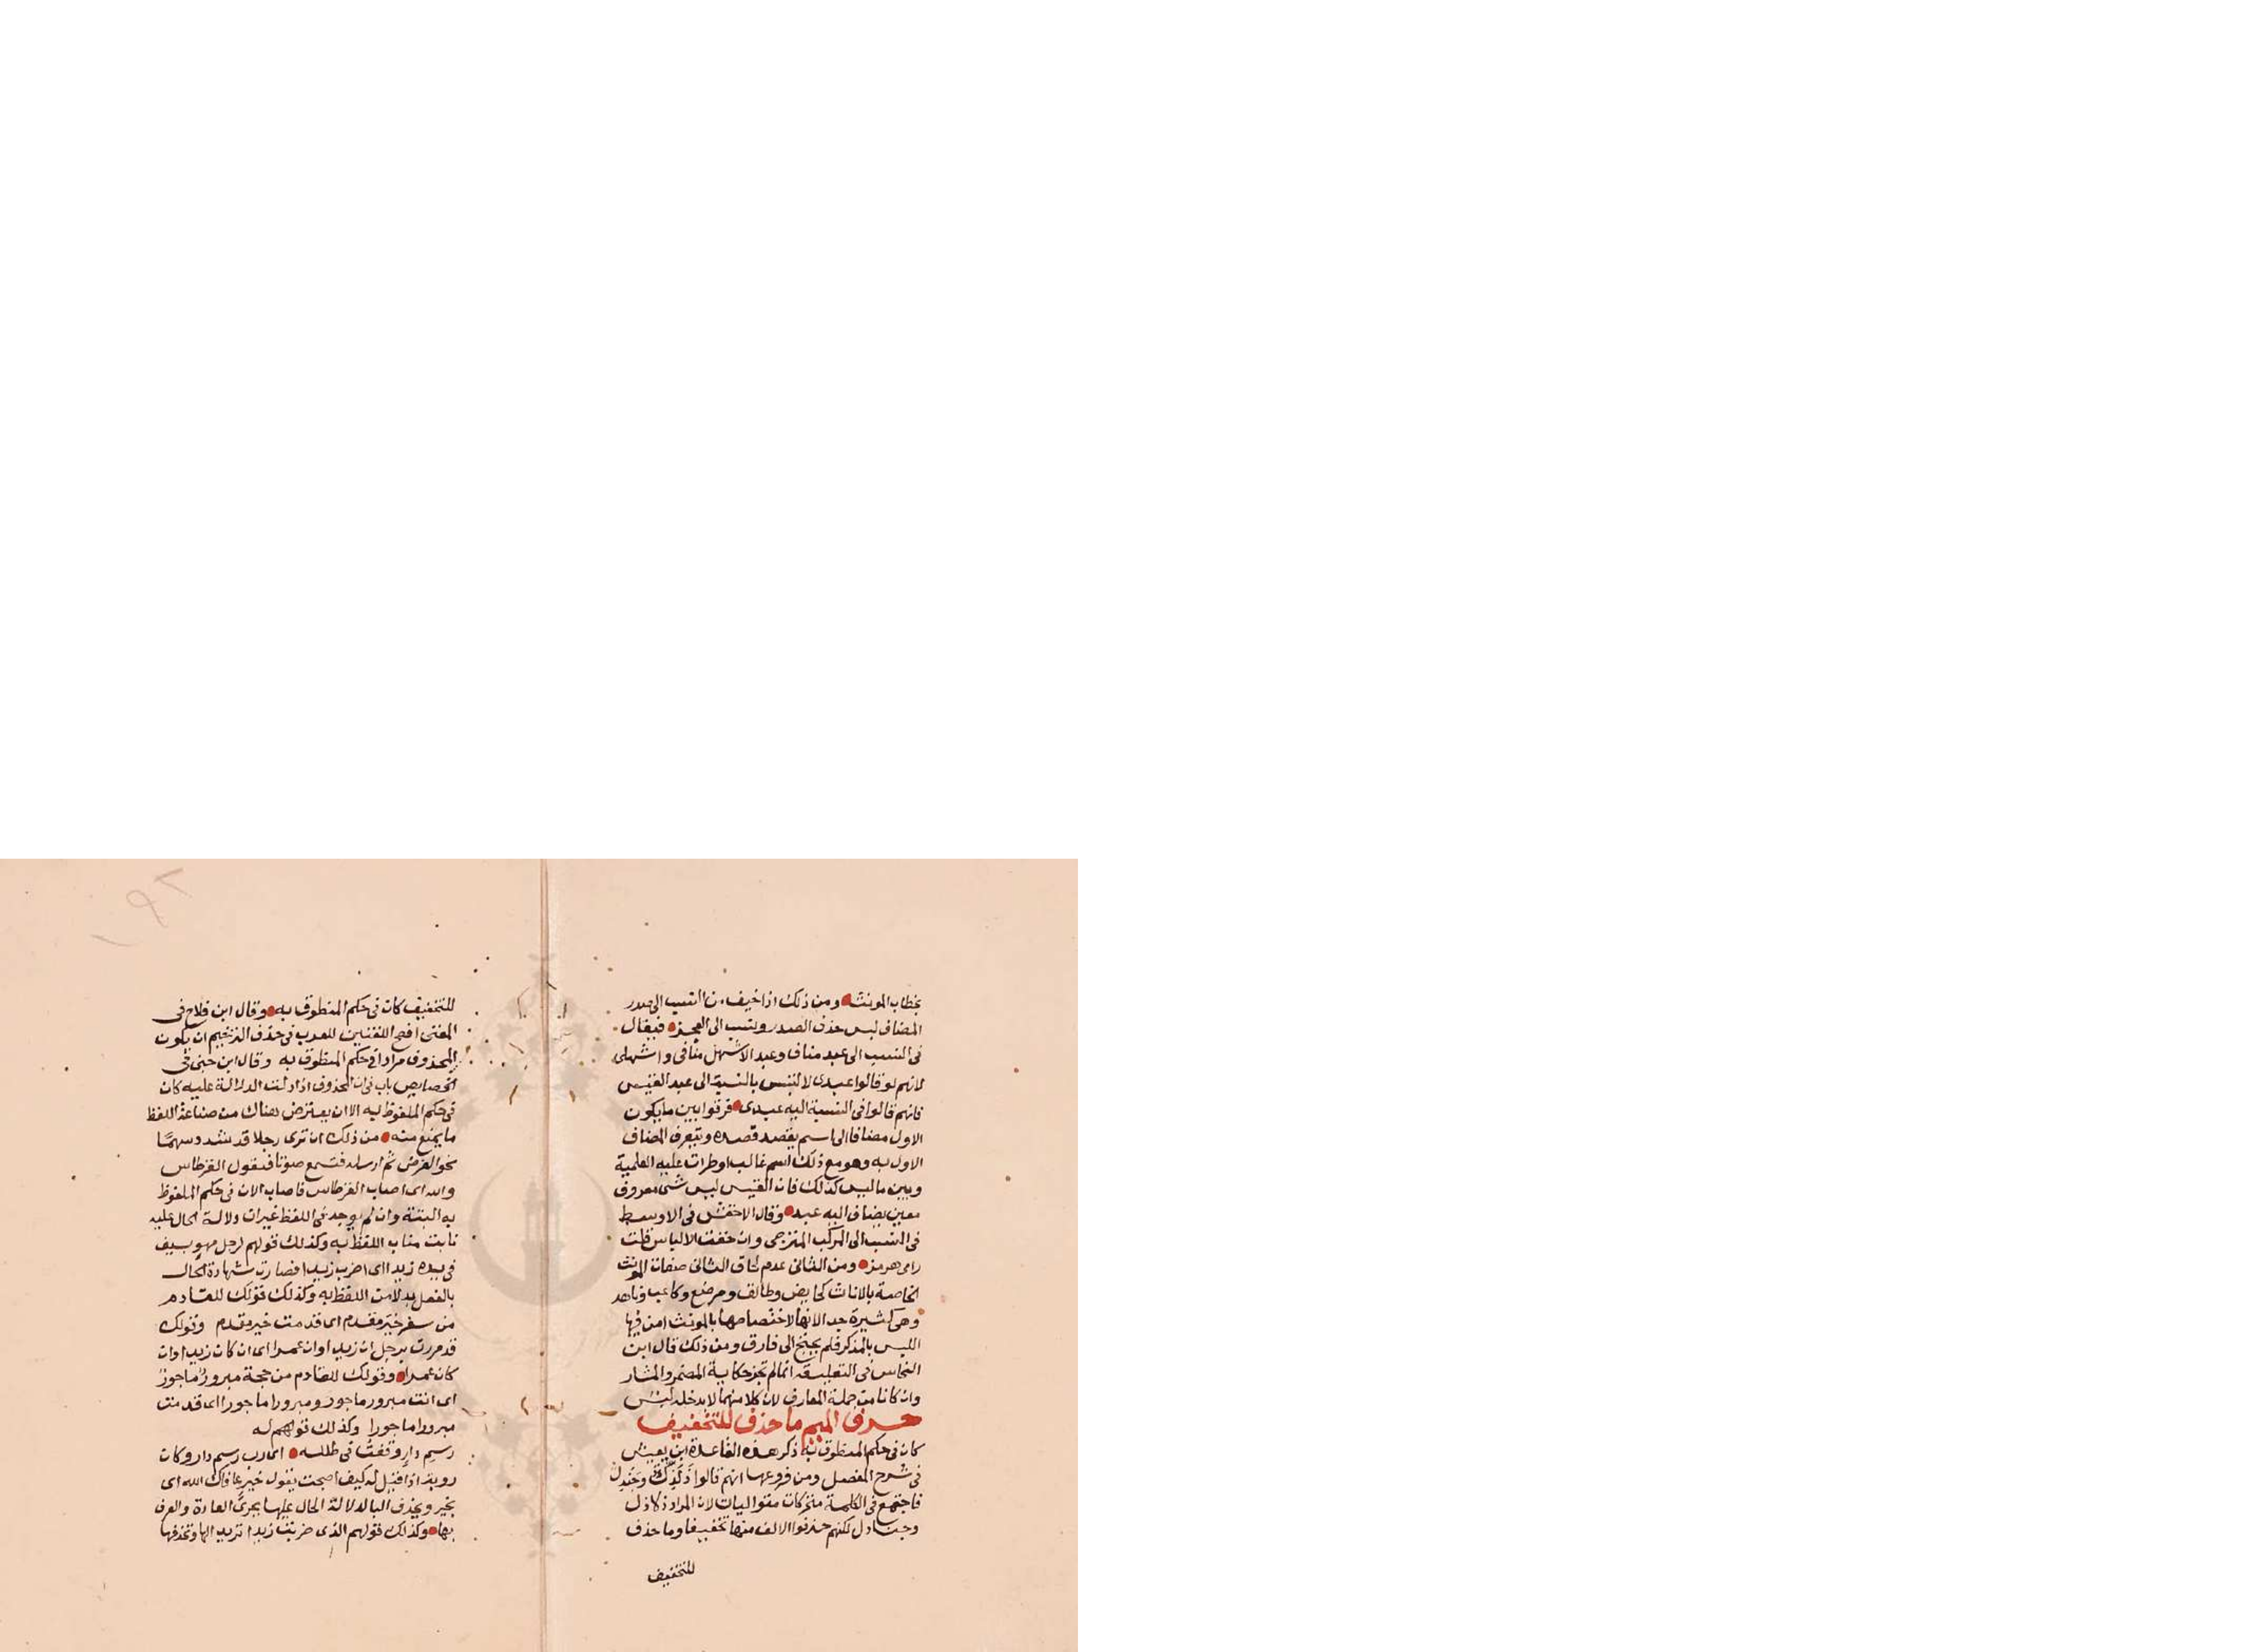 بخطاب المونث ومن ذلك اذا خيف من النسب الى صدر
المضاف لبس حذف الصدر ونسب الى العجز فيقال
فى النسب الى عبد مناف وعبد الاشهل منافى واشهلى
لانهم لو قالوا عبدى لالتبس بالنسبة الى عبد القيس
فانهم قالوا فى النسبة اليه عبدى فرقوا بين ما يكون
الاول مضافا الى اسم يقصد قصده ويتعرف المضاف
الاول به وهو مع ذلك اسم غالب او طرات عليه العلمية
وبين ما ليس كذلك فان القيس ليس شى معروف
معين يضاف اليه عبد وقال الاخفش فى الاوسط
فى النسب الى المركب المتزجى وان خفت الالباس قلت
رامى هرمزى ومن الثانى عدم لحاق التا فى صفات المونث
الخاصة بالاناث كحايض وطالق ومرضع وكاعب وناهد
وهى كثيرة جدا لانها لاختصاصها بالمونث امن فيها
اللبس بالمذكر فلم يحتج الى فارق ومن ذلك قال ابن
النحاس فى التعليقة انما لم تجز حكاية المضمر والمشار
وان كانا من جملة المعارف لان كلا منهما لا يدخله لبس
حرف الميم ما حذف للتخفيف
كان فى حكم المنطوق به ذكر هذه القاعدة ابن يعيش
فى شرح المفصل ومن فروعها انهم قالوا ذَلَذِل وجَنَدِل
فاجتمع فى الكلمة متحركات متواليات لان المراد ذلاذل
وجنادل لكنهم حذفوا الالف منها تخفيفا وما حذف
للتخفيف
للتخفيف كان فى حكم المنطوق به وقال ابن فلاح فى
المغنى افصح اللغتين للعرب فى حذف الترخيم ان يكون
المحذوف مرادا فى حكم المنطوق به وقال ابن جنى فى
الخصايص باب فى ان المحذوف اذا دلت الدلالة عليه كان
فى حكم الملفوظ به الا ان يعترض هناك من صناعة اللفظ
ما يمنع منه من ذلك ان ترى رجلا قد سدد سهمًا
نحو الغرض ثم ارسله فتسمع صوتا فتقول القرطاس
والله اى اصاب القرطاس فاصاب الان فى حكم الملفوظ
به البتة وان لم يوجد فى اللفظ غير ان دلالة الحال عليه
نابت مناب اللفظ به وكذلك قولهم لرجل مهو بسيف
فى يده زيدا اى اضرب زيدا فصارت شهادة الحال
بالفعل بدلا من اللفظ به وكذلك قولك للقادم
من سفر خير مقدم اى قدمت خير مقدم وقولك
قد مررت برجل ان زيدا وان عمرا اى ان كان زيدا وان
كان عمرا وقولك للقادم من حجة مبرور ماجور
اى انت مبرور ماجور ومبرورا ماجورا اى قدمت
مبرورا ماجورا وكذلك قولهم له
رسم دار وقفت فى طلله اى رب رسم دار وكان
روبة اذا قيل له كيف اصبحت يقول خير عافاك الله اى
بخير ويحذف البا لدلالة الحال عليها بجرى العادة والعرف
بها وكذلك قولهم الذى ضربت زيدا تريد الها وتحذفها